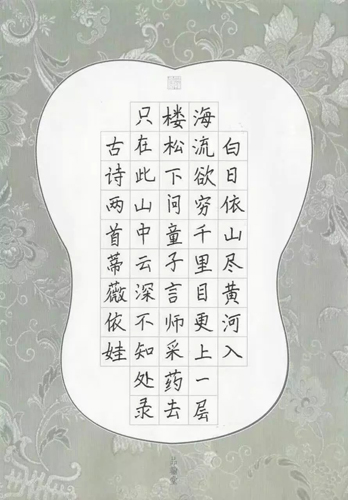 白日依山尽黄河入
海流欲穷千里目更上一层
楼松下问童子言师采药去
只在此山中云深不知处录
古诗两首蒂薇依娃